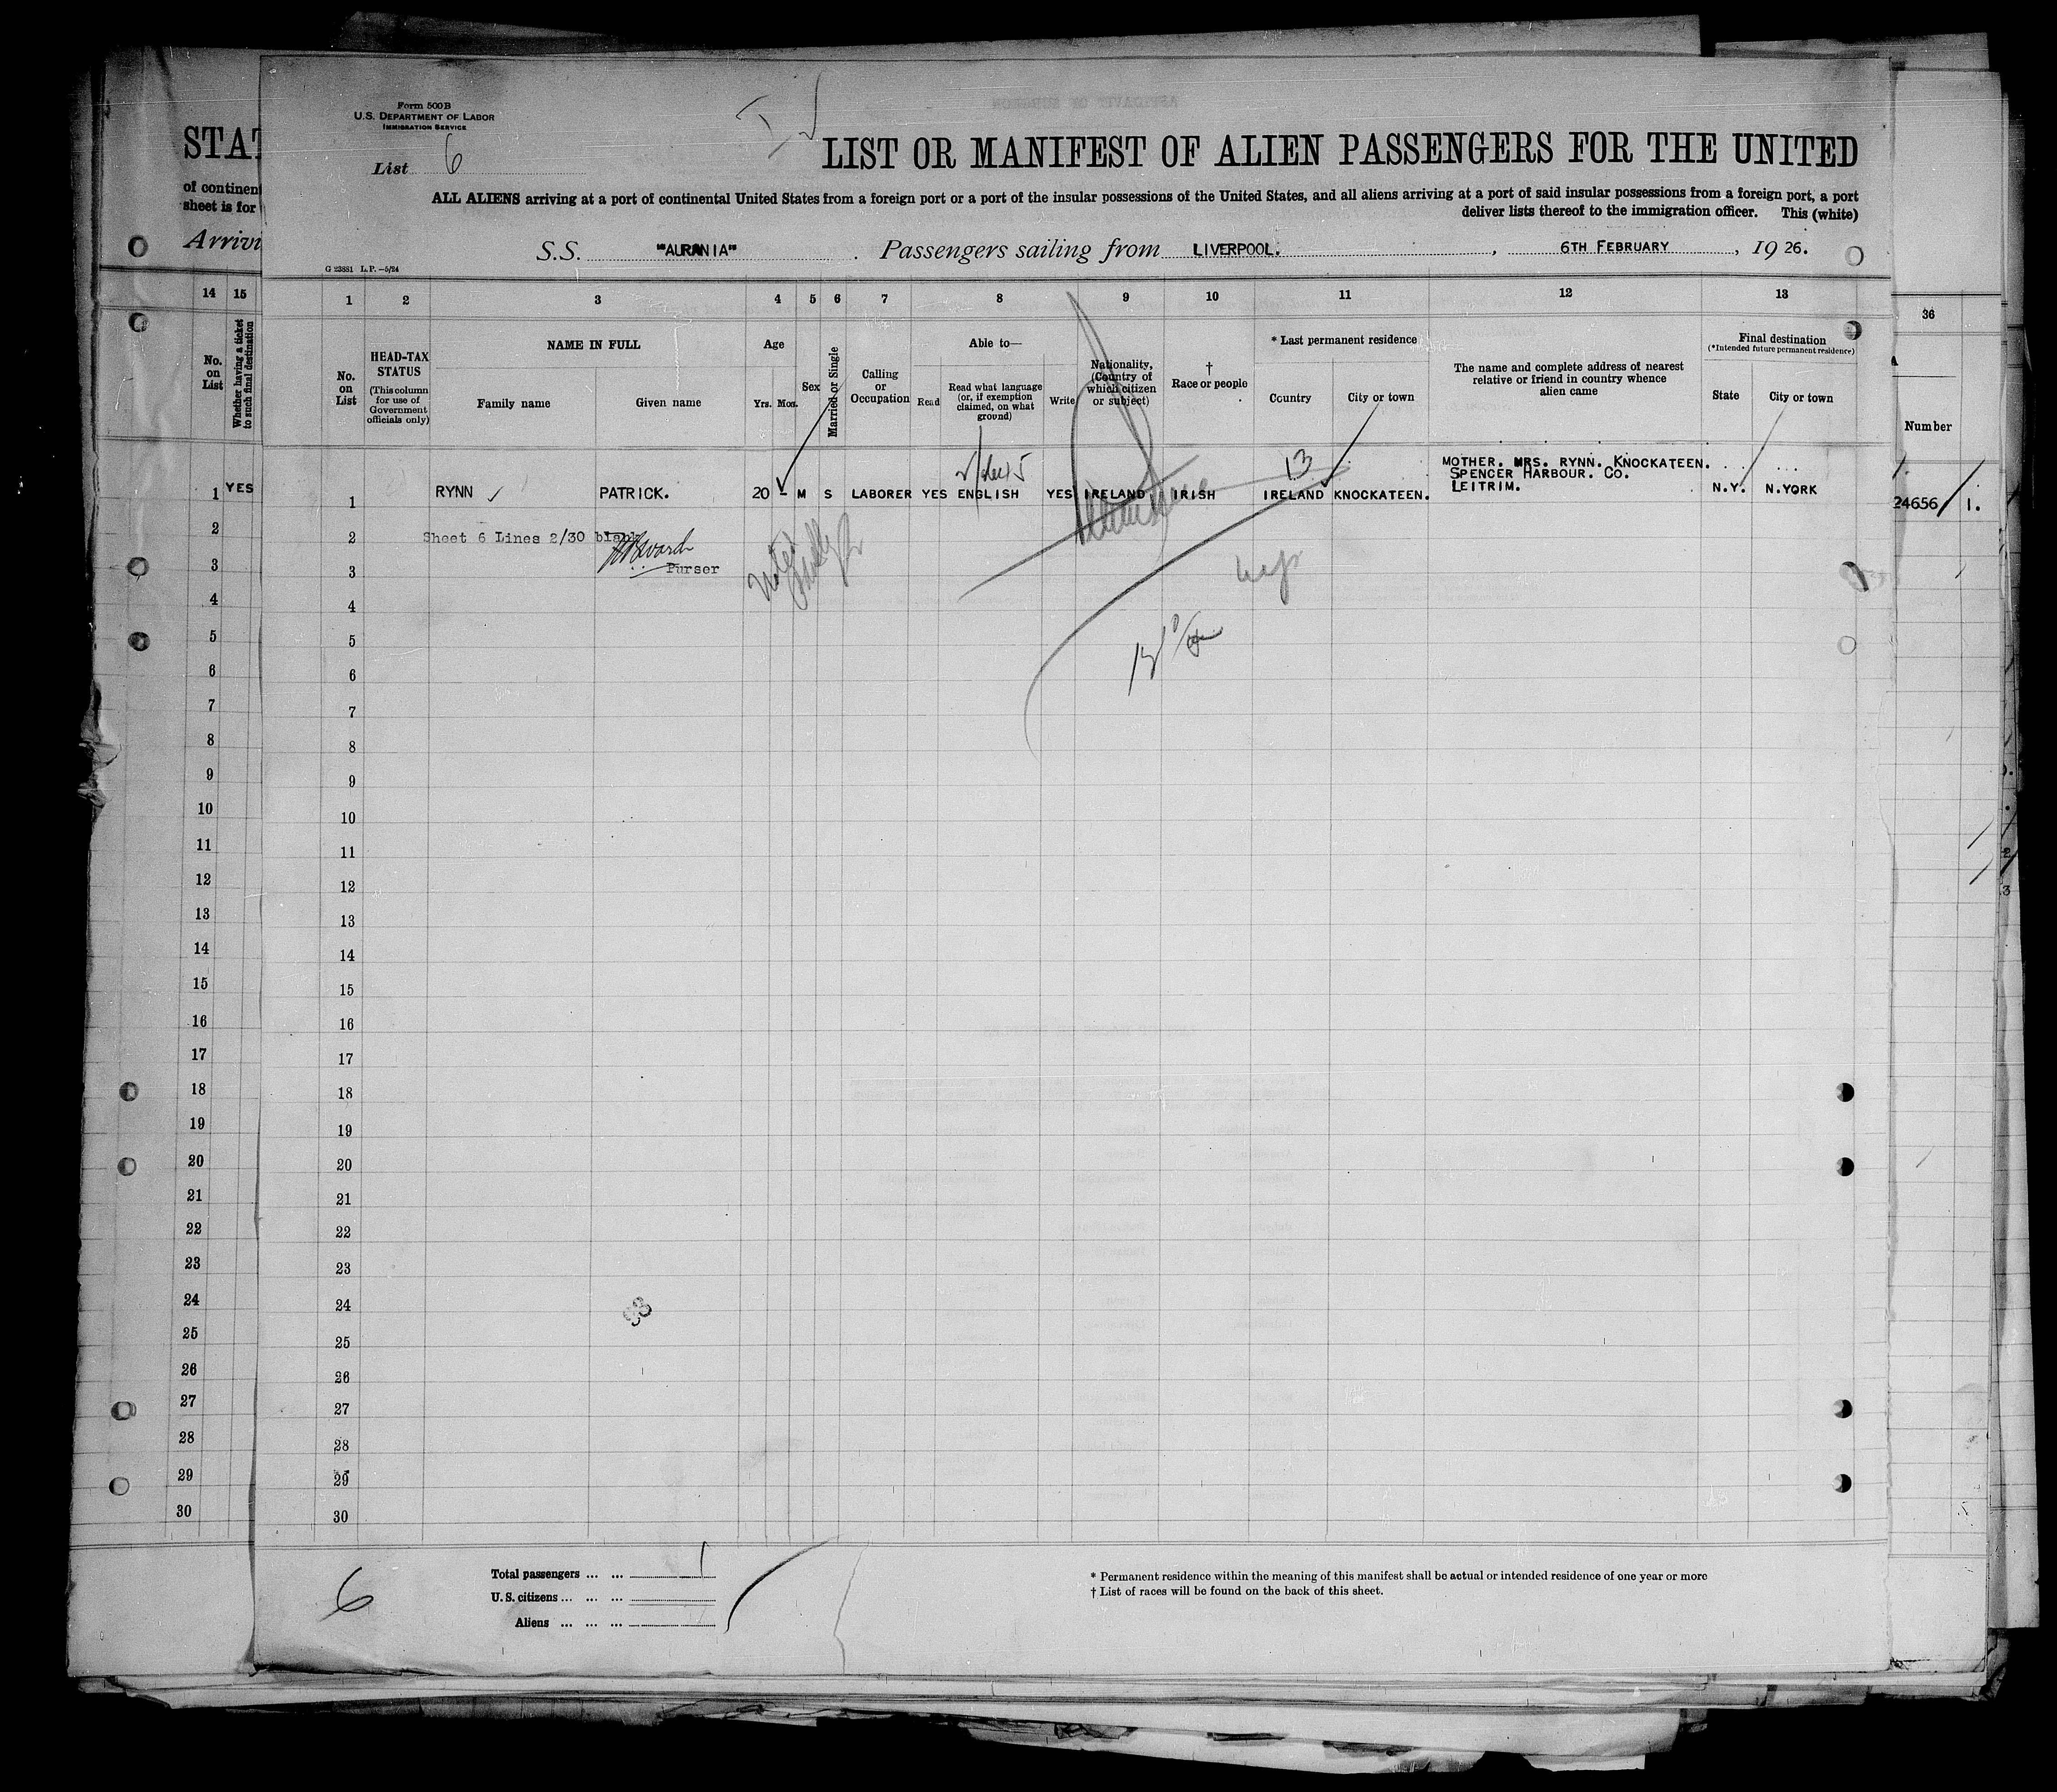 Form 500B
U.S. DEPARTMENT OF LABOR
IMMIGRATION SERVICE
List 6
LIST OR MANIFEST OF ALIEN PASSENGERS FOR THE UNITED
ALL ALIENS arriving at a port of continental United States from a foreign port or a port of the insular possessions of the United States, and all aliens arriving at a port of said insular possessions from a foreign port, a port
deliver lists thereof to the immigration officer. This (white)
S.S. "AURANIA". Passengers sailing from LIVERPOOL., 6TH FEBRUARY, 19 26.
G 23881 L.P.—5/24
STAT
of continent
sheet is for
Arrivi
14 15
No. on List
Whether having a ticket to such final destination
1 2 3 4 5 6 7 8 9 10 11 12 13
36
Number
No. on List
HEAD-TAX STATUS
(This column for use of Government officials only)
NAME IN FULL
Family name Given name
Age
Yrs. Mos.
Sex
Married or Single
Calling or Occupation
Able to—
Read
Read what language (or, if exemption claimed, on what ground)
Write
Nationality, (Country of which citizen or subject)
† Race or people
* Last permanent residence
Country City or town
The name and complete address of nearest relative or friend in country whence alien came
Final destination
(*Intended future permanent residence)
State City or town
13
MOTHER. MRS. RYNN. KNOCKATEEN.
SPENCER HARBOUR. CO.
LEITRIM.
1 YES 1 RYNN PATRICK. 20 - M S LABORER YES ENGLISH YES IRELAND IRISH IRELAND KNOCKATEEN. N.Y. N.YORK
24656 / 1.
2 2 Sheet 6 Lines 2/30 blank
3 3 Purser
4 4
5 5
6 6
7 7
8 8
9 9
10 10
11 11
12 12
13 13
14 14
15 15
16 16
17 17
18 18
19 19
20 20
21 21
22 22
23 23
24 24
25 25
26 26
27 27
28 28
29 29
30 30
6
Total passengers ... ... 1
U.S. citizens ... ... ...
Aliens ... ... ...
* Permanent residence within the meaning of this manifest shall be actual or intended residence of one year or more
† List of races will be found on the back of this sheet.